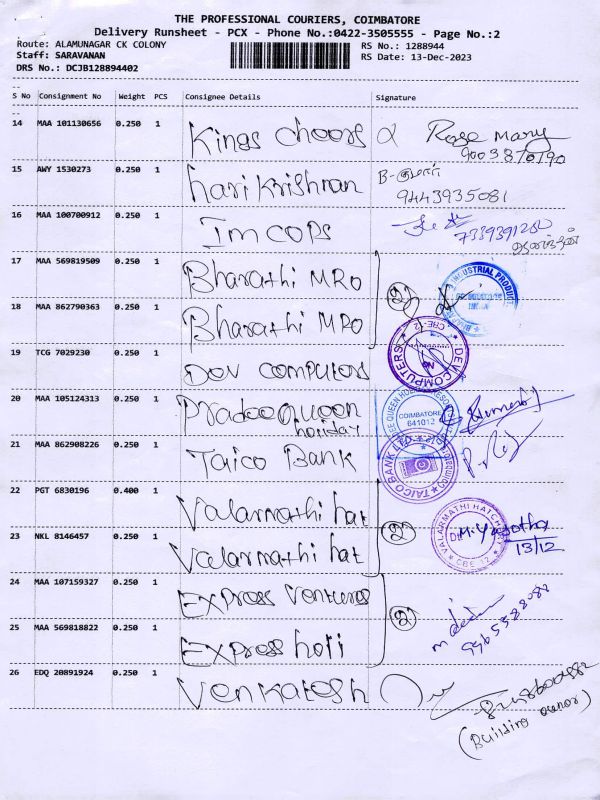 THE PROFESSIONAL COURIERS, COIMBATORE
Delivery Runsheet - PCX - Phone No.:0422-3505555 - Page No.:2
Route: ALAMUNAGAR CK COLONY
RS No.: 1288944
Staff: SARAVANAN
RS Date: 13-Dec-2023
DRS No.: DCJB128894402
S No Consignment No Weight PCS Consignee Details Signature
14 MAA 101130656 0.250 1 Kings choors Rose Mary
9003870190
15 AWY 1530273 0.250 1 hari Krishnan B-குமார்
9443935081
16 MAA 100700912 0.250 1 Imcops
17 MAA 569819509 0.250 1 Bharathi MRO
2
INDUSTRIAL PRODUC
18 MAA 862790363 0.250 1 Bharathi MRO
19 TCG 7029230 0.250 1 Dev computers
DEV COMPUTERS
CBE-12
20 MAA 105124313 0.250 1 Pradeequeen
holiday
COIMBATORE
641012
21 MAA 862908226 0.250 1 Taico Bank
TAICO BANK LTD
22 PGT 6830196 0.400 1 Valarmathi hat
23 NKL 8146457 0.250 1 Valarmathi hat
2
VALARMATHI HATCHERY
CBE 12
13/12
24 MAA 107159327 0.250 1 Express Ventures
2
25 MAA 569818822 0.250 1 Express holi
9965388082
26 EDQ 20891924 0.250 1 Venkatesh
(Building owner)